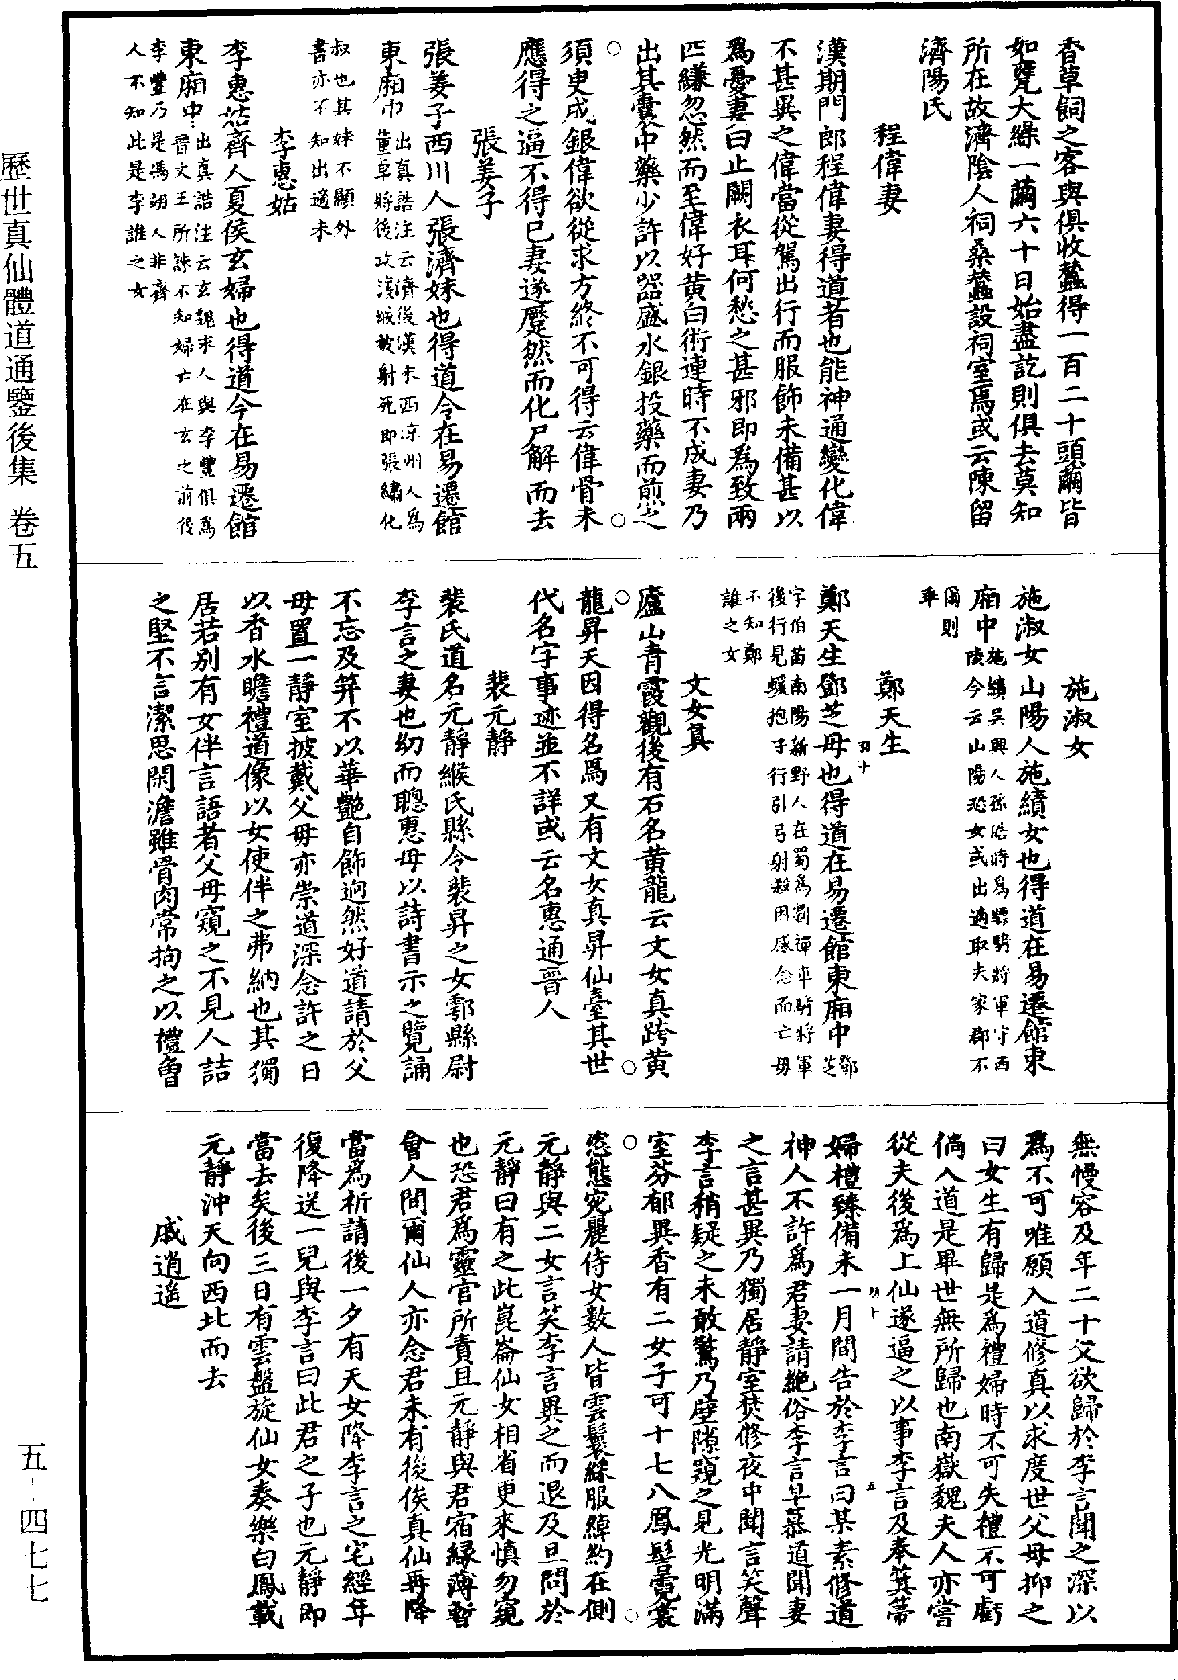 歷世真仙體道通鑒後集　卷五
五－四七七
香草飼之客與俱收蠶得一百二十頭繭皆
如甕大繰一繭六十日始盡訖則俱去莫知
所在故濟陰人祠桑蠶設祠室焉或云陳留
濟陽氏
程偉妻
漢期門郎程偉妻得道者也能神通變化偉
不甚異之偉當從駕出行而服飾未備甚以
為憂妻曰止闕衣耳何愁之甚邪即為致兩
匹縑忽然而至偉好黃白術連時不成妻乃
出其囊中藥少許以器盛水銀投藥而煎之
須臾成銀偉欲從求方終不可得云偉骨未
應得之逼不得已妻遂蹷然而化尸解而去
張姜子
張姜子西川人張濟妹也得道今在易遷館
東廂中出真誥注云濟後漢末西涼州人為
董卓將後攻穰城被射死即張繡
叔也其妹不顯外
書亦不知出適未
李惠姑
李惠姑齊人夏侯玄婦也得道今在易遷館
東廂中出真誥注云玄魏末人與李豐俱為
晉文王所誅不知婦亡在玄之前後
李豐乃是馮翊人非齊
人不知此是李誰之女
施淑女
施淑女山陽人施績女也得道在易遷館東
廂中施績吳興人孫皓時為驃騎將軍守西
陵今云山陽恐女或出適取夫家郡不
爾則
乖
鄭天生
鄭天生鄧芝母也得道在易遷館東廂中鄧
芝
字伯苗南陽新野人在蜀為劉禪車騎將軍
後行見蝯抱子行引弓射殺因感念而亡母
不知鄭
誰之女
文女真
廬山青霞觀後有石名黃龍云文女真跨黃
龍昇天因得名焉又有文女真昇仙臺其世
代名字事迹並不詳或云名惠通晉人
裴元靜
裴氏道名元靜緱氏縣令裴昇之女鄠縣尉
李言之妻也幼而聰惠母以詩書示之覽誦
不忘及笄不以華艷自飾迥然好道請於父
母置一靜室披戴父母亦崇道深念許之日
以香水瞻禮道像以女使伴之弗納也其獨
居若別有女伴言語者父母窺之不見人詰
之堅不言潔思閑澹雖骨肉常拘之以禮曾
無慢容及年二十父欲歸於李言聞之深以
為不可唯願入道修真以求度世父母抑之
曰女生有歸是為禮婦時不可失禮不可虧
倘入道是畢世無所歸也南嶽魏夫人亦嘗
從夫後為上仙遂逼之以事李言及奉箕箒
婦禮臻備未一月間告於李言曰某素修道
神人不許為君妻請絕俗李言早慕道聞妻
之言甚異乃獨居靜室焚修夜中聞言笑聲
李言稍疑之未敢驚乃壁隙窺之見光明滿
室芬郁異香有二女子可十七八鳳髻霓裳
恣態宛麗侍女數人皆雲鬟綵服綽約在側
元靜與二女言笑李言異之而退及旦問於
元靜曰有之此崑崙仙女相省更來慎勿窺
也恐君為靈官所責且元靜與君宿緣薄暫
會人間爾仙人亦念君未有後俟真仙再降
當為祈請後一夕有天女降李言之宅經年
復降送一兒與李言曰此君之子也元靜即
當去矣後三日有雲盤旋仙女奏樂白鳳載
元靜沖天向西北而去
戚逍遙